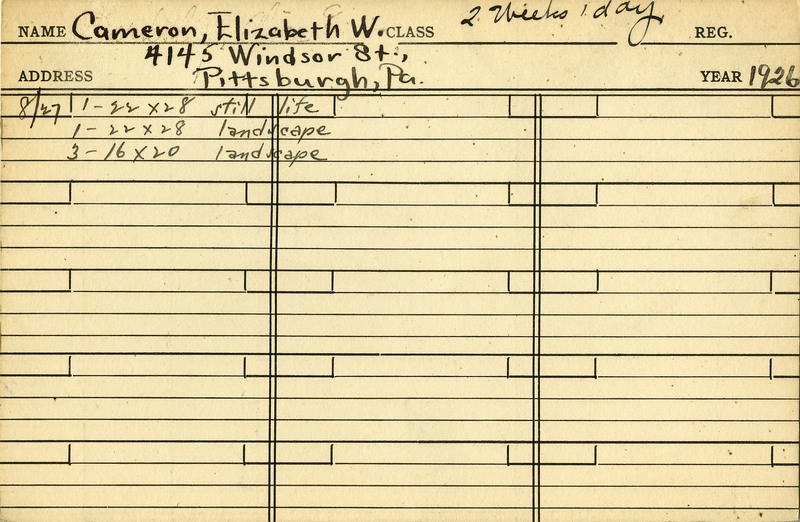 NAME Cameron, Elizabeth W. CLASS 2 Weeks 1 day REG.
4145 Windsor St.,
ADDRESS Pittsburgh, Pa. YEAR 1926
8/27 1-22 x 28 still life
1-22 x 28 landscape
3-16 x 20 landscape